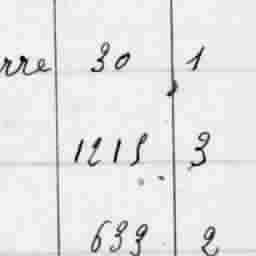 rre 30 1
1215 3
639 2